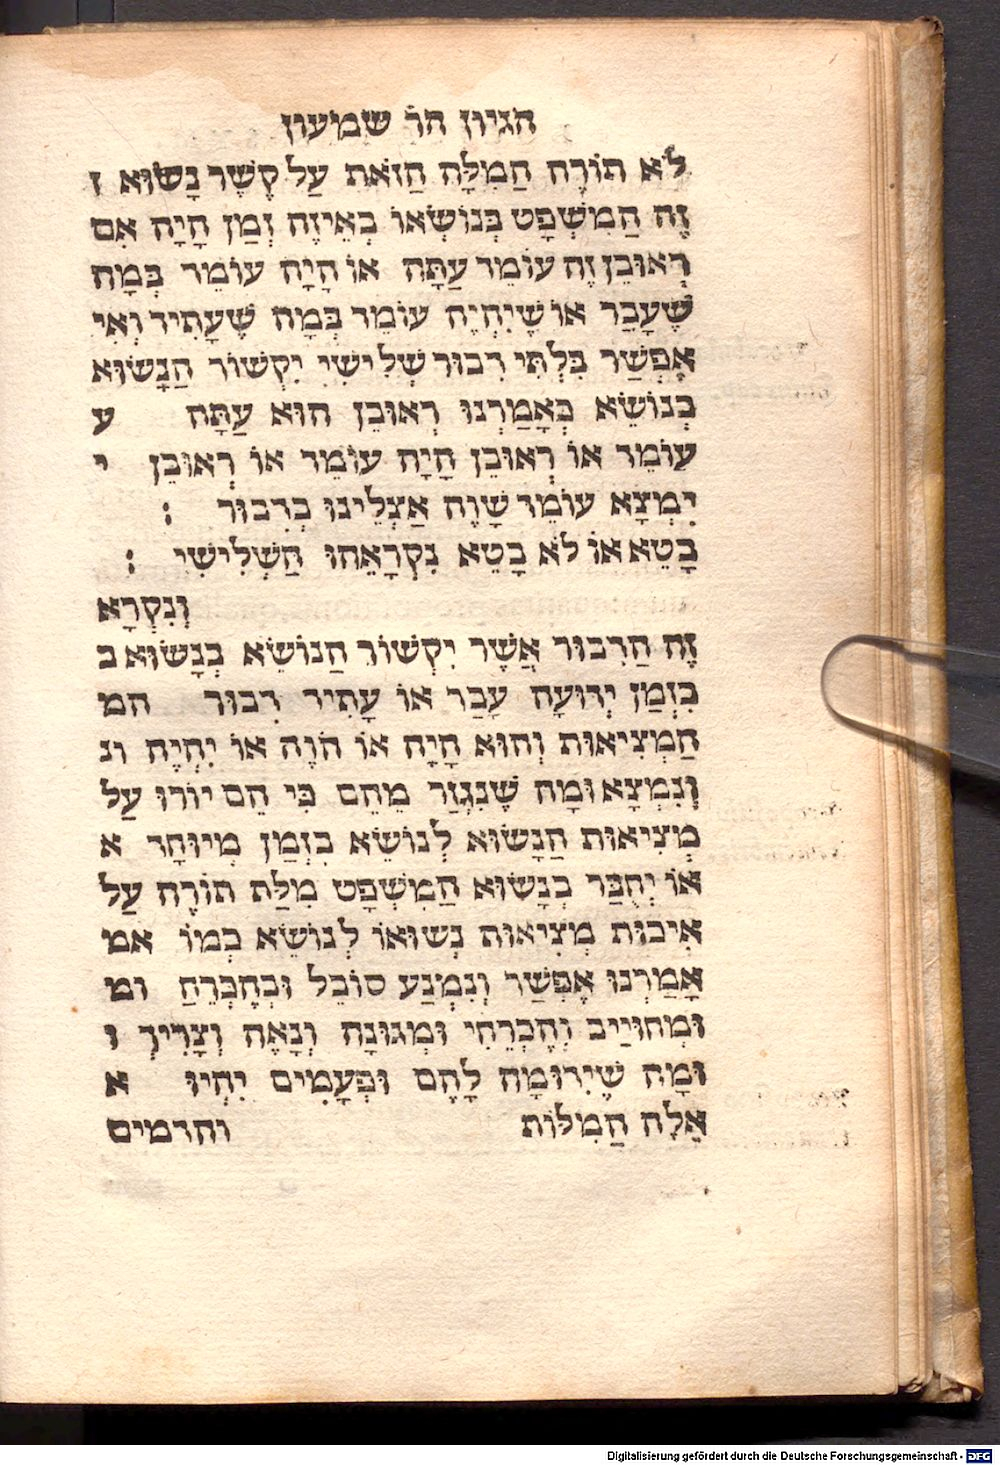 הגיון הר שמעון
לֹא תוֹרֶה הַמִלָּה הַזֹאת עַל קֶשֶר נָשׂוּא ז
זֶה הַמִשְׁפָט בְּנוֹשְׂאוֹ בְאֵיזֶה זְמַן הָיָה אִם
רְאוּבֵן זֶה עוֹמֵר עַתָּה אוֹ הָיָה עוֹמֵר בְּמָה
שֶׁעָבַר אוֹ שֶׁיִהְיֶה עוֹמֵר בְּמָה שֶׁעָתִיר וְאִי
אֶפְשַׁר בִּלְתִּי דִבּוּר שְׁלִישִׁי יִקְשׁוֹר הַנָשׂוּא
בְנוֹשֵׂא בְּאָמַרְנוּ רְאוּבֵן הוּא עַתָּה ע
עוֹמֵר אוֹ רְאוּבֵן הָיָה עוֹמֵר אוֹ רְאוּבֵן י
יִמְצָא עוֹמֵר שָׁוֶה אַצְלֵינוּ בְדִבוּר :
בָטֵא אוֹ לֹא בָטֵא נִקְרָאֵהוּ הַשְׁלִישִׁי :
וְנִקְרָא
זֶה הַדִבּוּר אֲשֶׁר יִקְשׁוֹר הַנוֹשֵׂא בְנָשׂוּא ב
בִזְמַן יְדוּעָה עָבַר אוֹ עָתִיר דִבוּר המ
הַמְצִיאוּת וְהוּא הָיָה אוֹ הֹוֶה אוֹ יִהְיֶה ונ
וְנִמְצָא וּמָה שֶׁנִגְזַר מֵהֶם כִּי הֵם יוֹרוּ עַל
מְצִיאוּת הַנָשׂוּא לְנוֹשֵׂא בִזְמַן מְיוּחָד א
אוֹ יְחֻבַּר בְנָשׂוּא הַמִשְׁפָט מִלַּת תוֹרֶה עַל
אֵיכוּת מְצִיאוּת נְשׂוּאוֹ לְנוֹשֵׂא כְמוֹ אמ
אָמַרְנוּ אֶפְשַׁר וְנִמְנַע סוֹבֵל וּבְהֶכְּרֵחַ ומ
וּמְחוּיַיב וְהֶכְרֵחִי וּמְגוּנָה וְנָאֶה וְצָרִיךְ ו
וּמָה שֶׁיִדוּמָה לָהֶם וּפְּעָמִים יִהְיוּ א
אֵלֶה הַמִלּוֹת והדמים